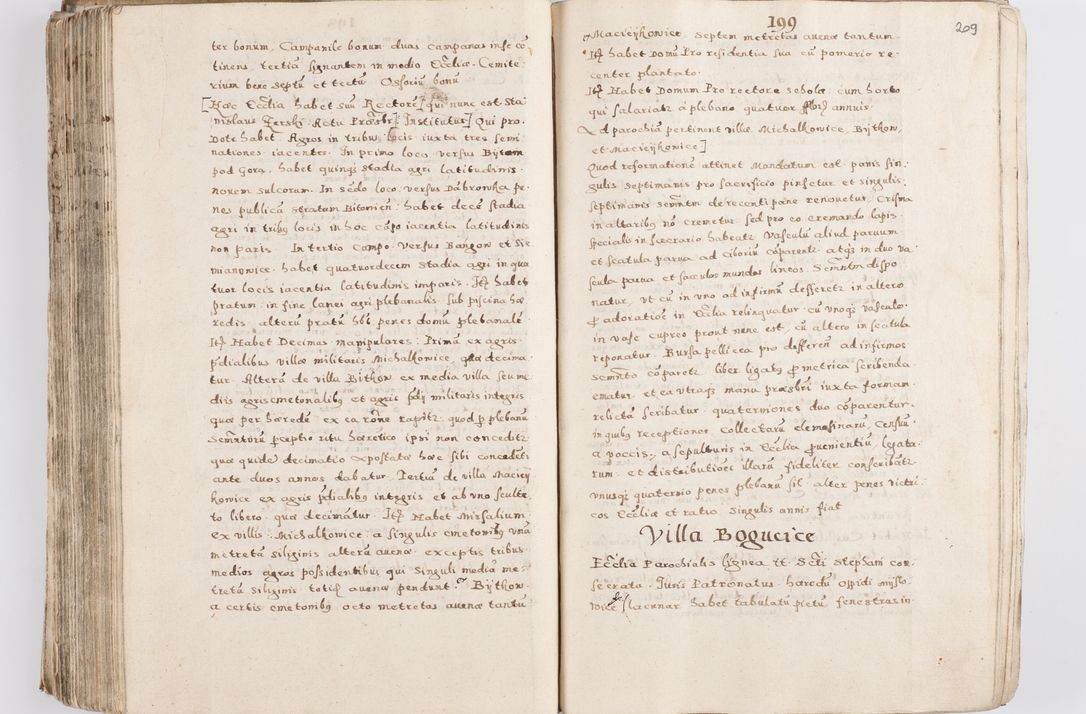 ter bonum, Campanile bonum duas campanas in se cō
tinens, tertiā signantem in medio Eccliæ. Cemite:
rium bene septū et tectū Ossoriū bonū
[Hæc Ecclia habet suū Rectorē, qui nunc est Sta
nislaus Zerski Actu Præsbr: Institutus] Qui pro
Dote habet Agros in tribus locis iuxta tres semi
nationes iacentes. In primo loco versus Bijtom
pod Gora, habet quinqȝ stadia agri latitudinis
novem sulcorum. In sēdo loco versus Dabrowka pe:
nes publicā stratam Bitomien: habet decē stadia
agri in tribus locis in hoc cāpo iacentia latitudinis
non paris. In tertio campo versus Bangow et Sie
mianowice habet quatuordecem stadia agri in qua
tuor locis iacentia latitudinis imparis. Itē habet
pratum in fine lanei agri plebanalis. Sub piscina hæ
redis alterū pratū hēt penes domū plebanalē
Itē Habet Decimas manipulares: Primā ex agris
pdialibus villæ militaris Michalkowice, quæ decima
tur. Alterā de villa Bithow ex media villa seu me
diis agris cmetonalibus et agris pdij militaris integris
quæ per hæredē ex ea rōne rapitr quod p plebanū
Semntorū perceptio ritu hæretico ipsi non conceditr
quæ quidē decimatio Apostatæ hæc sibi concedēti
ante duos annos dabatur. Tertiā de villa Maciey
kowice ex agris pdialibus integris et ab uno sculte
to libero quæ decimātur. Itē Habet Missalium
Ex villis: Michalkowice a singulis cmetonibus unā
metretā siliginis alterā avenæ exceptis tribus
medios agros possidentibus qui singuli mediā me=
tretā siliginis totidē avenæ pendunt. Bijthow
a certis cmetonibus octo metretas avenæ tantū
199
209
Macieijkowice Septem metretas avenæ tantum.
Itē habet Domū Pro residentia sua cū pomerio re
center plantato.
Itē Habet Domum Pro rectore scholæ cum horto
qui salariatr a plebano quatuor annuis.
Ad parochiā pertinent villæ, Michalkowice, Bijtkow,
et Macieijkowice]
Quod reformationē attinet Mandatum est panis sin:
gulis septimanis pro sacrificio pinsetur et singulis
septimanis semntm de recenti pane renovetur, Crisma
in altaribus nō cremetur sed pro eo cremando lapis
specialis in sacrario habeatr. Vasculū aliud parvum
et scatula parva ad ciboriū cōparentr. atqȝ in duo va
scula parva et sacculos mundos lineos. Semntm dispo
natur, ut cū in uno ad infirmū defferetr in altero
p adoratiōe in Ecclia relinquatur cū unoqȝ vasculo
in vase cupreo prout nunc est, cū altero in scatula
reponatur. Bursa pellicea pro defferen ad infirmos
semnto cōparetr liber ligatus p metrica scribenda
ematur. et ea utraqȝ manu præsbri iuxta formam
relictā scribatur quaterniones duo cōparentur.
in quibus receptiones Collectarū elemosinarū, Censuū
a voccis, a sepulturis in Ecclia puenientiū legata
rum et distributiōes illarū fideliter conscribātr
unusqȝ quaternio penes plebanū sit alter penes vitri:
cos Eccliæ et ratio singulis annis fiat
Villa Bogucice
Ecclia Parochialis lignea tt: Scti Stephani con
secrata. Juris Patronatus hæredū Oppidi Mijslo
wice [lacunar habet tabulatū pictū, fenestras in